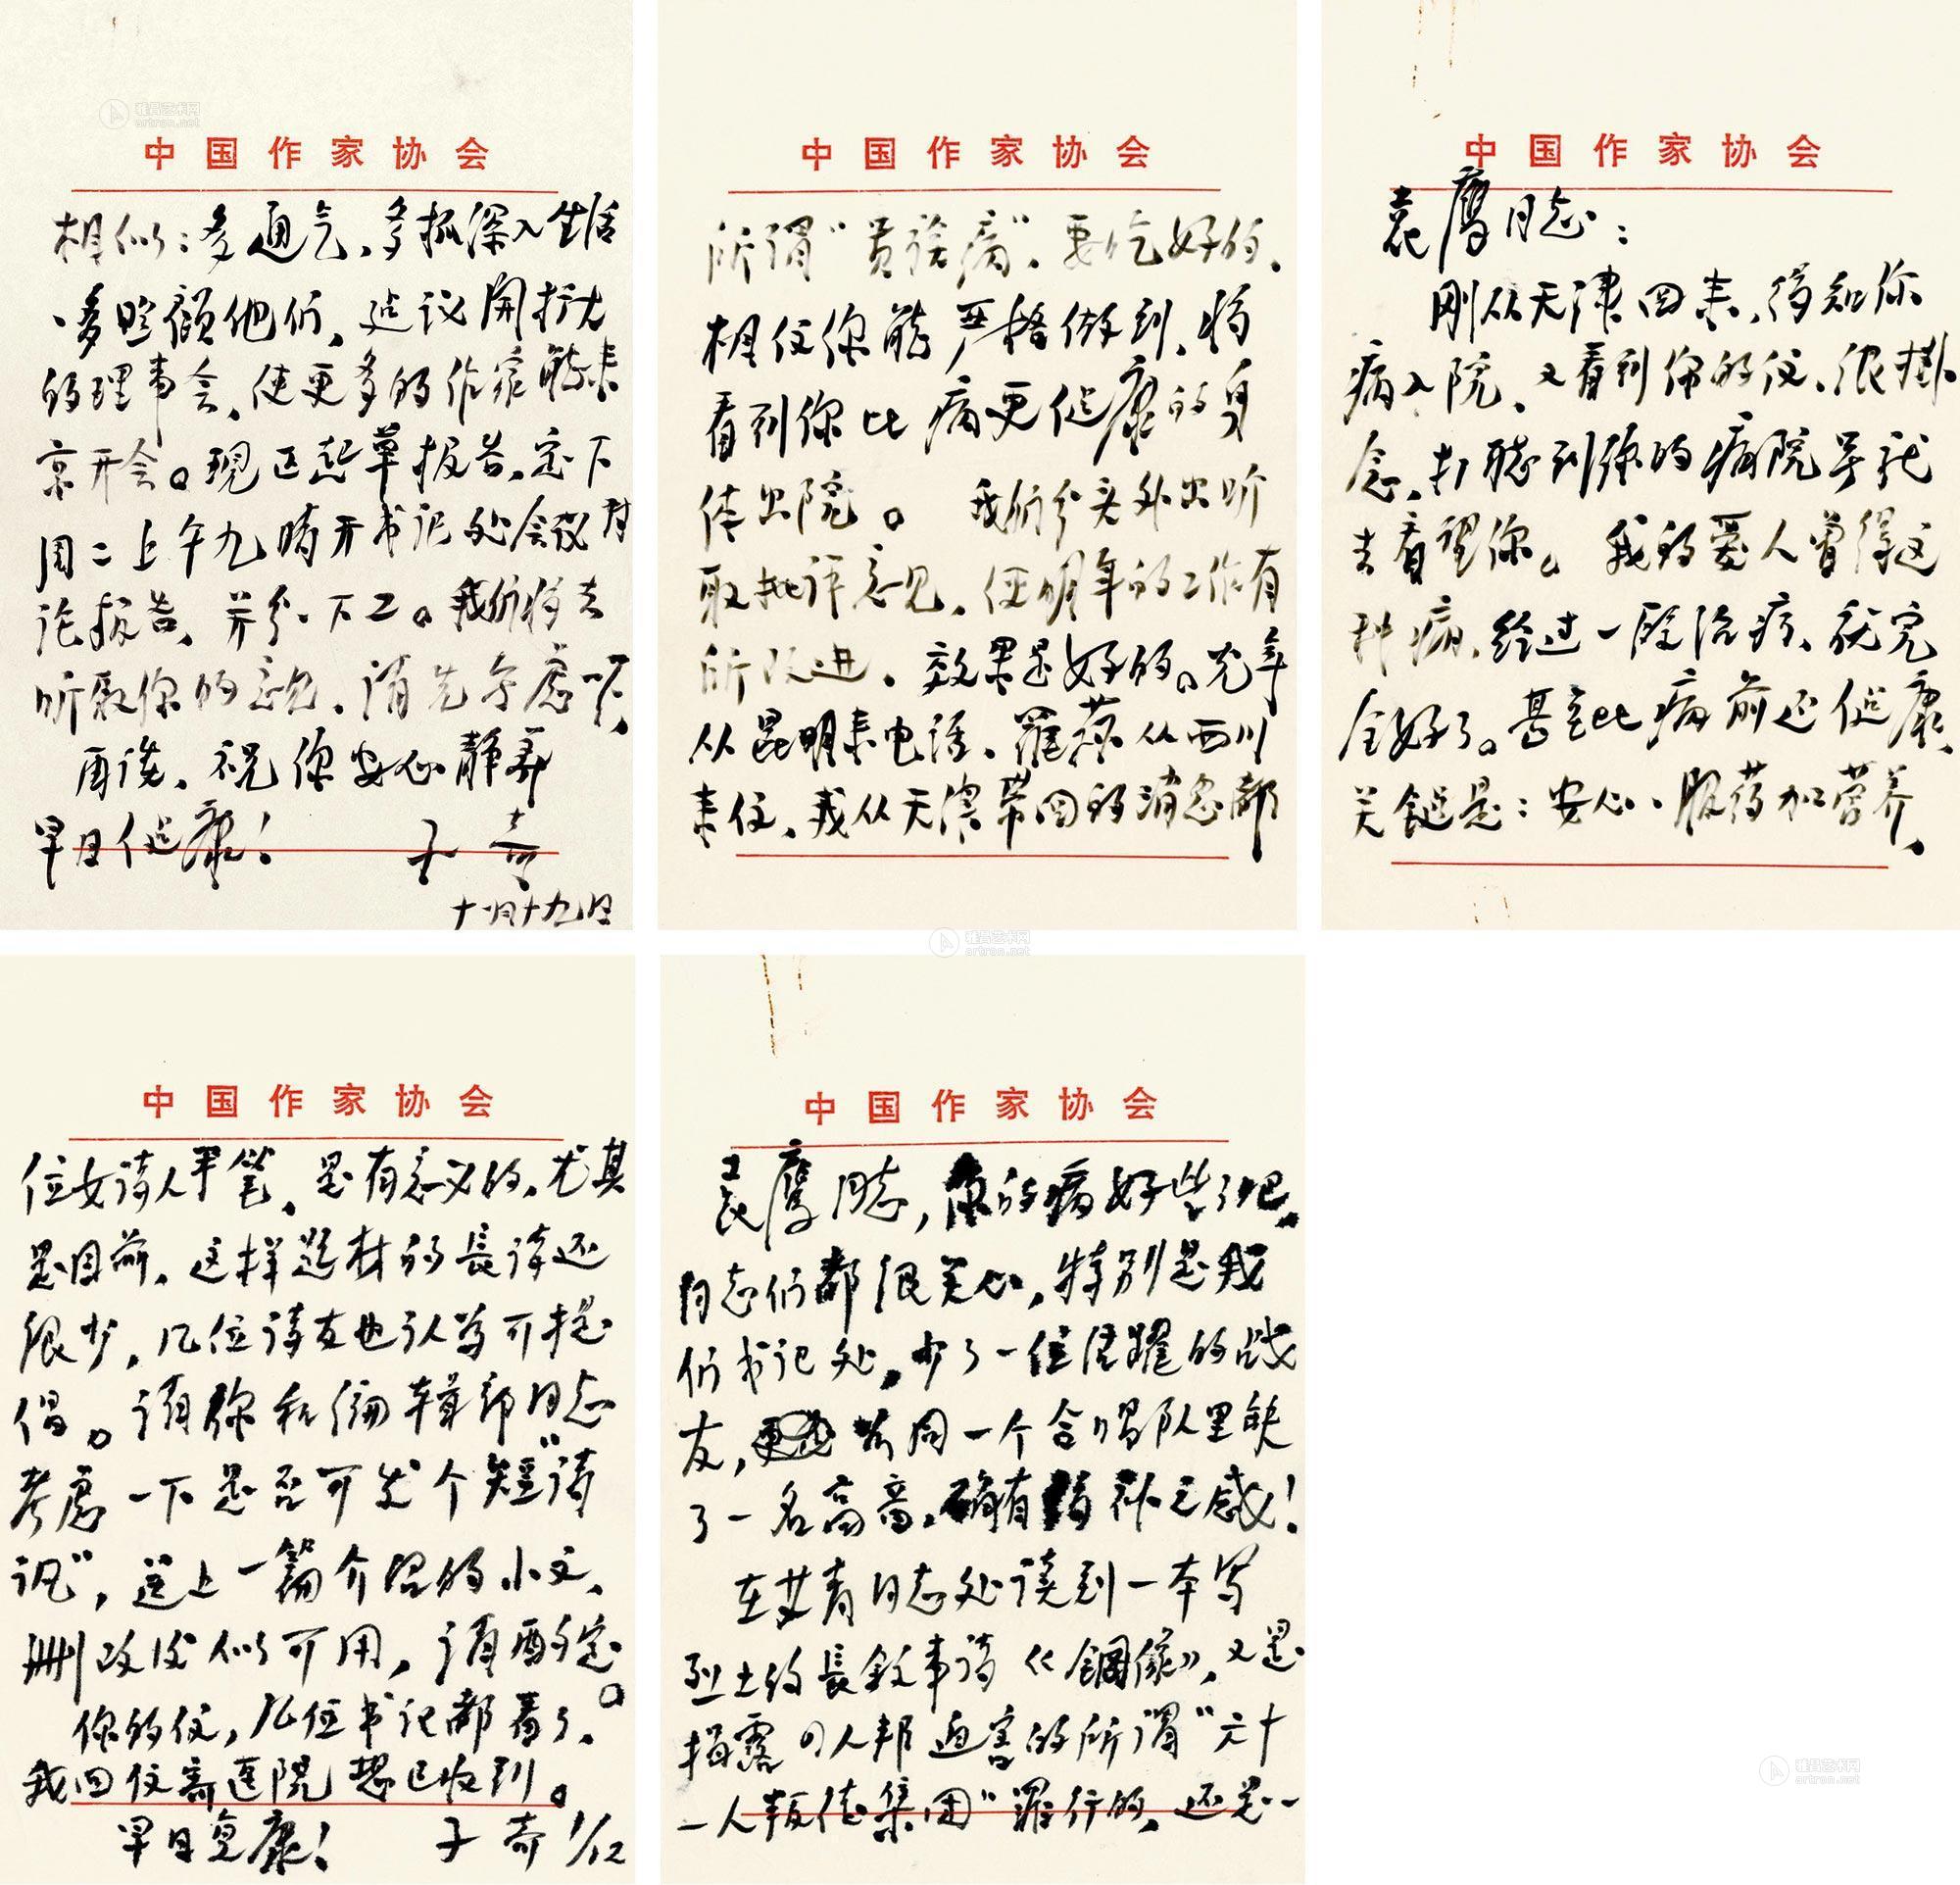 中国作家协会
袁鹰同志：
刚从天津回来，得知你
病入院，又看到你的信，很掛
念，打聽到你的病院号就
去看望你。我的爱人曾得这
种病，经过一段治疗，就完
全好了。甚至比病前还健康，
关键是：安心、服药和营养，
中国作家协会
所谓“要吃好的，
相信你能严格做到，将
看到你比病更健康的身
体出院。 我们分头外出听
取批评意见，使明年的工作有
所改进，效果是好的。光年
从昆明来电话，羅荪从四川
来信，我从天津带回的消息都
中国作家协会
相似：多通气、多抓深入生活
、多照顧他们，建议開扩大
的理事会，使更多的作家能来
京开会。現正起草报告，定下
周二上午九時开书记处会议討
论报告，并分一下工。我们将去
听取你的意见，请先考慮一下，
再谈，祝你安心静养
早日健康！ 子奇
十一月十九日
中国作家协会
袁鹰同志，你的病好些了吧，
同志们都很关心，特别是我
们书记处，少了一位活躍的战
友，如同一个合唱队里缺
了一名高音，确有之感！
在艾青同志处读到一本写
烈士的長叙事诗《钢像》，又是
揭露四人邦迫害的所谓“六十
一人叛徒集团”罪行的，还是一
中国作家协会
位女诗人手笔，是有意义的，尤其
是目前，这样题材的長诗还
很少，几位诗友也认为可提
倡。请你和编辑部同志
考慮一下是否可发个短“诗
讯”，送上一篇介绍的小文，
删改后似可用，请酌定。
你的信，几位书记都看了，
我回信寄医院想已收到。
早日复康！ 子奇 1/12
雅昌艺术网
artron.net
雅昌艺术网
artron.net
雅昌艺术网
artron.net